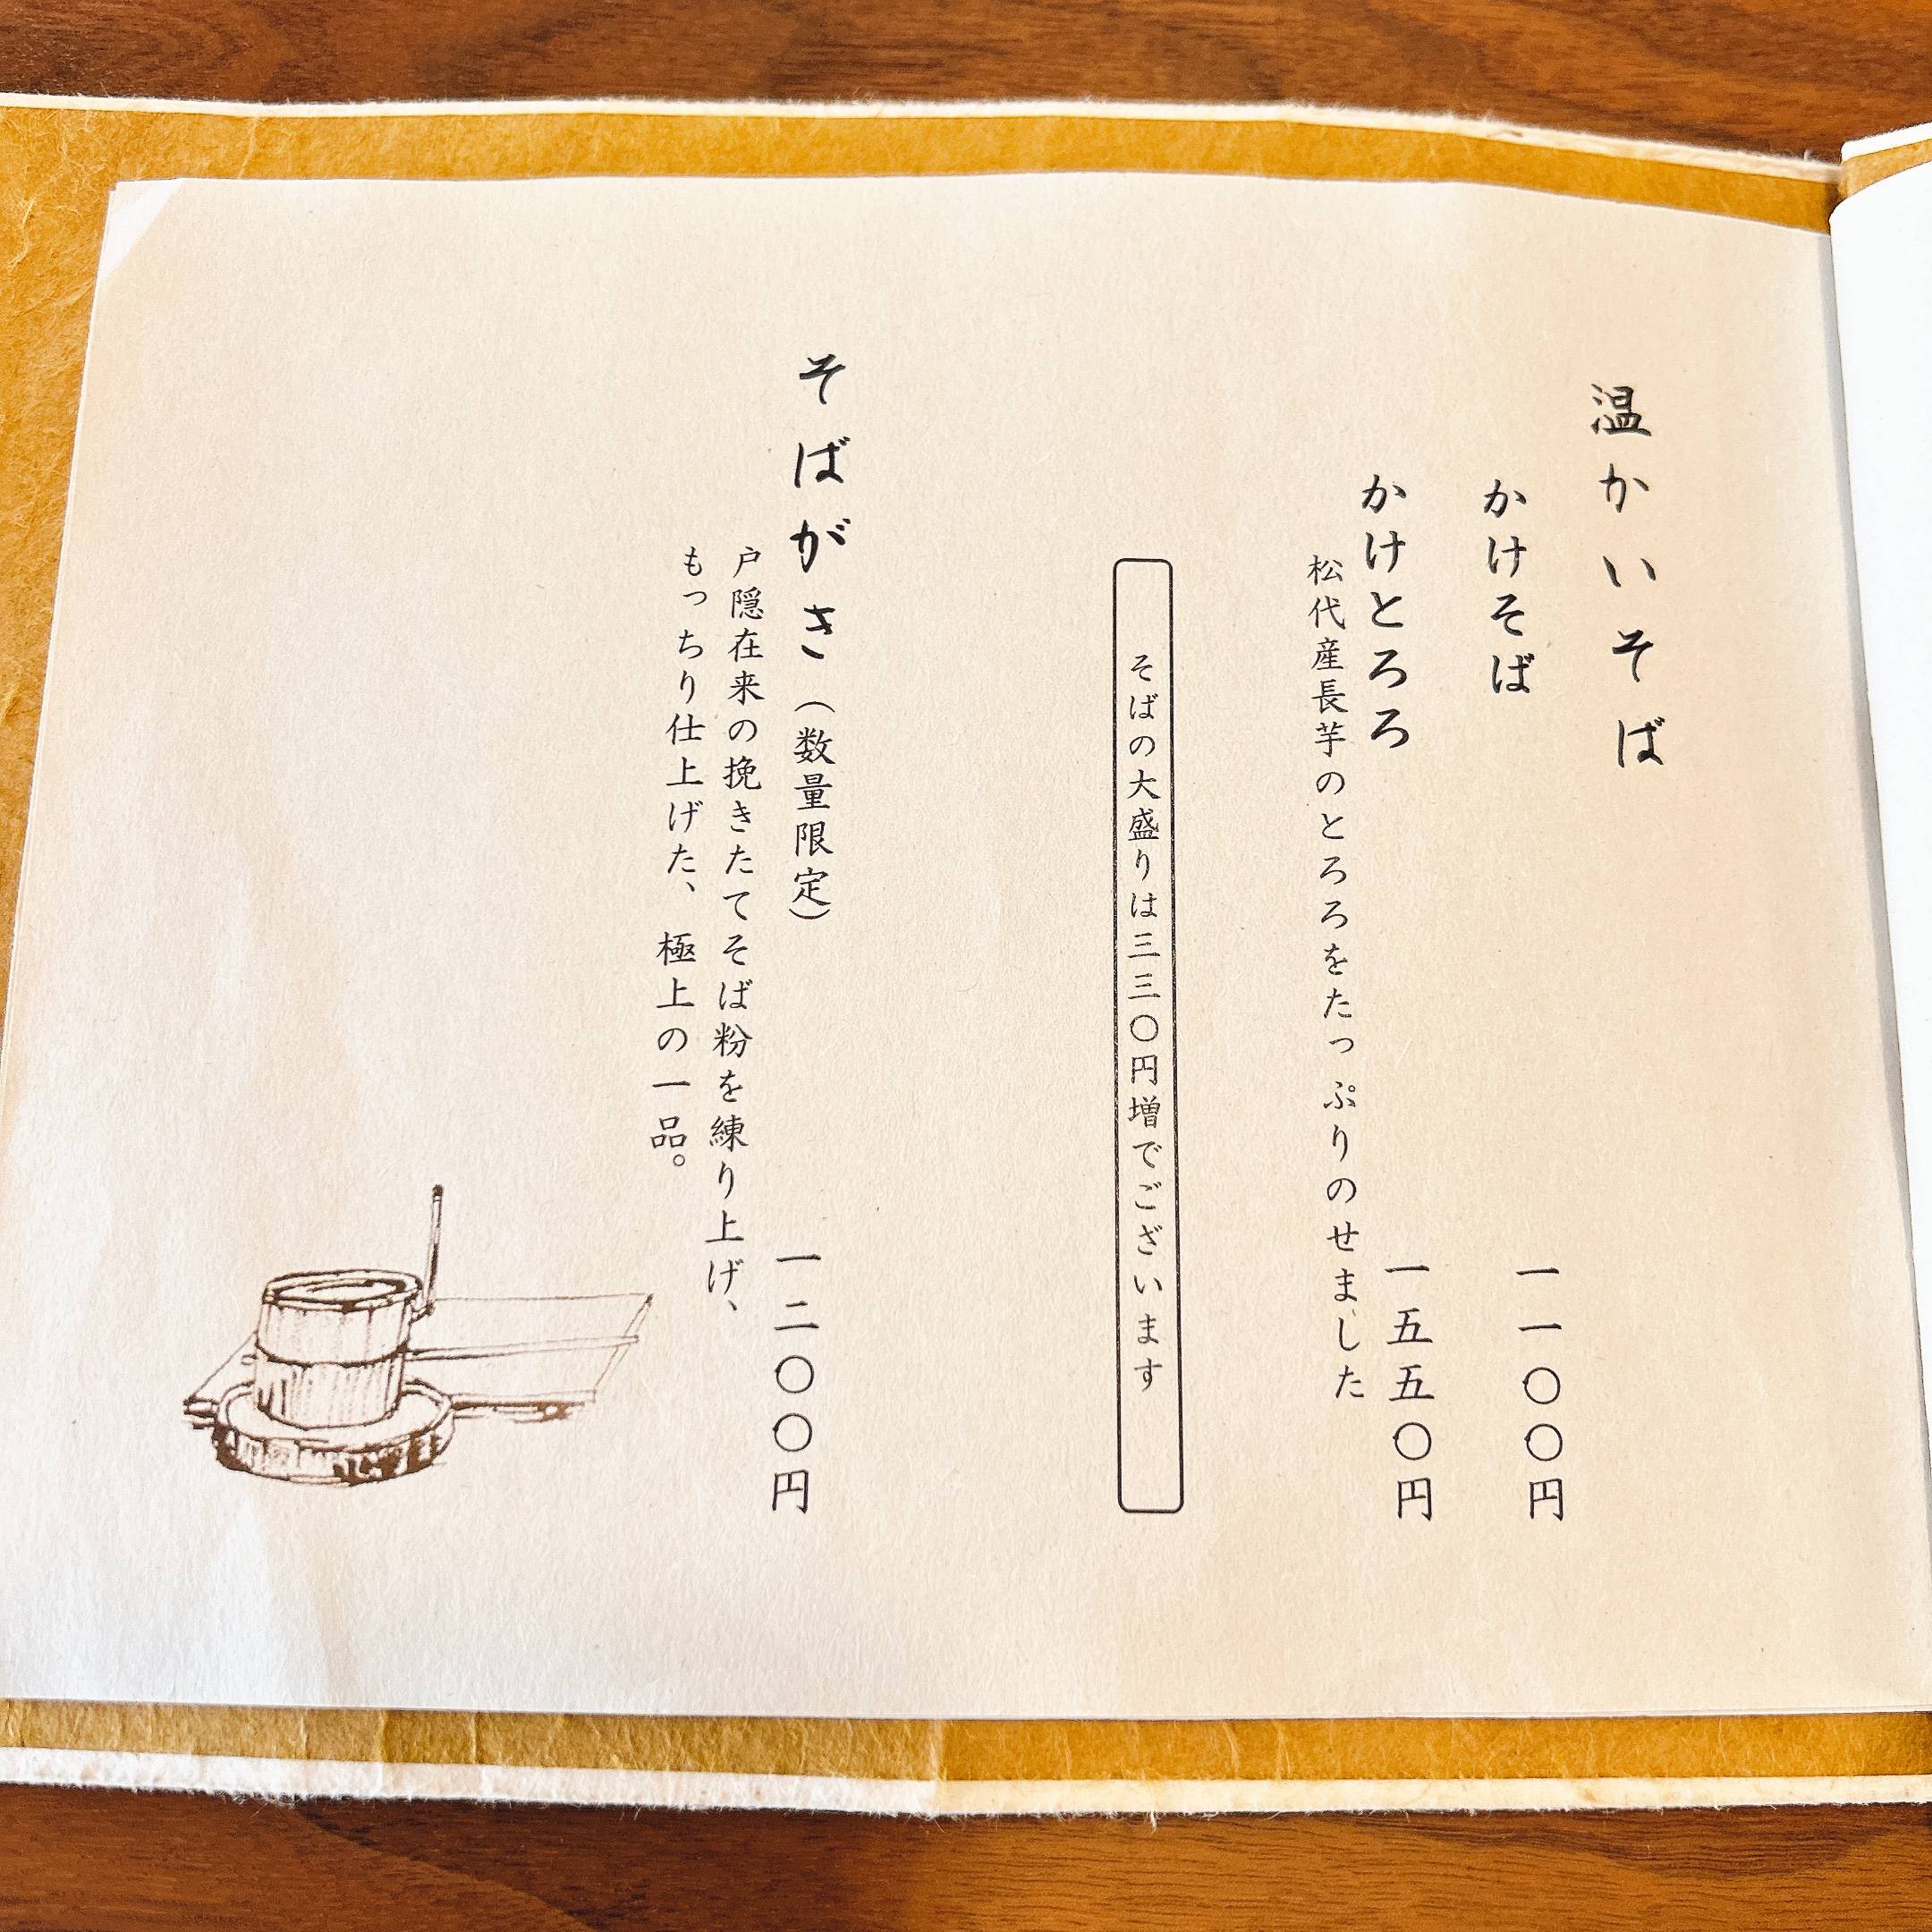 温かいそば
かけそば 一一〇〇円
かけとろろ 一五五〇円
松代産長芋のとろろをたっぷりのせました
そばの大盛りは三三〇円増でございます
そばがき（数量限定） 一二〇〇円
戸隠在来の挽きたてそば粉を練り上げ、
もっちり仕上げた、極上の一品。